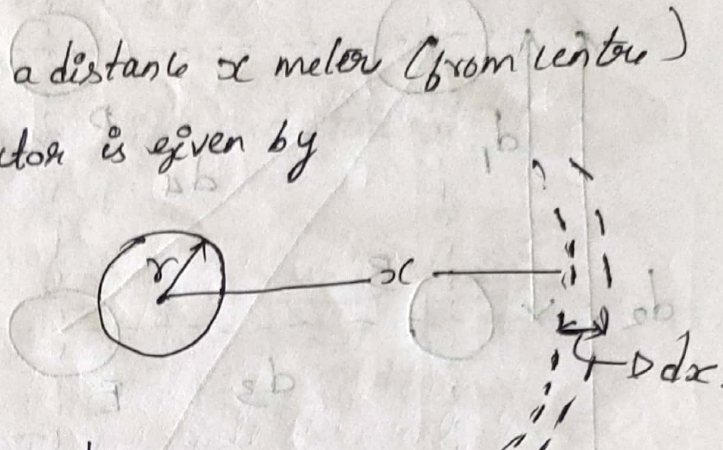 a distance x meter (from centre)
ctor is given by
r
x
dx.